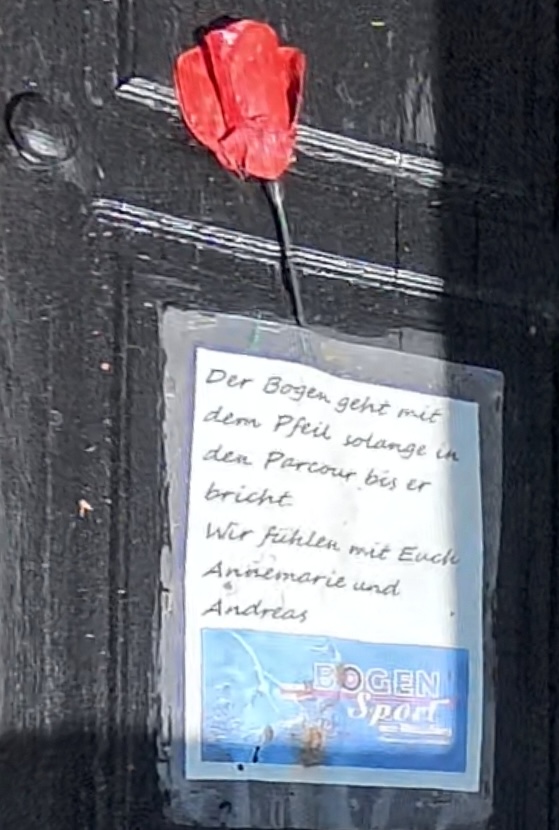 Der Bogen geht mit
dem Pfeil solange in
den Parcour bis er
bricht.
Wir fühlen mit Euch
Annemarie und
Andreas
BOGEN
Sport